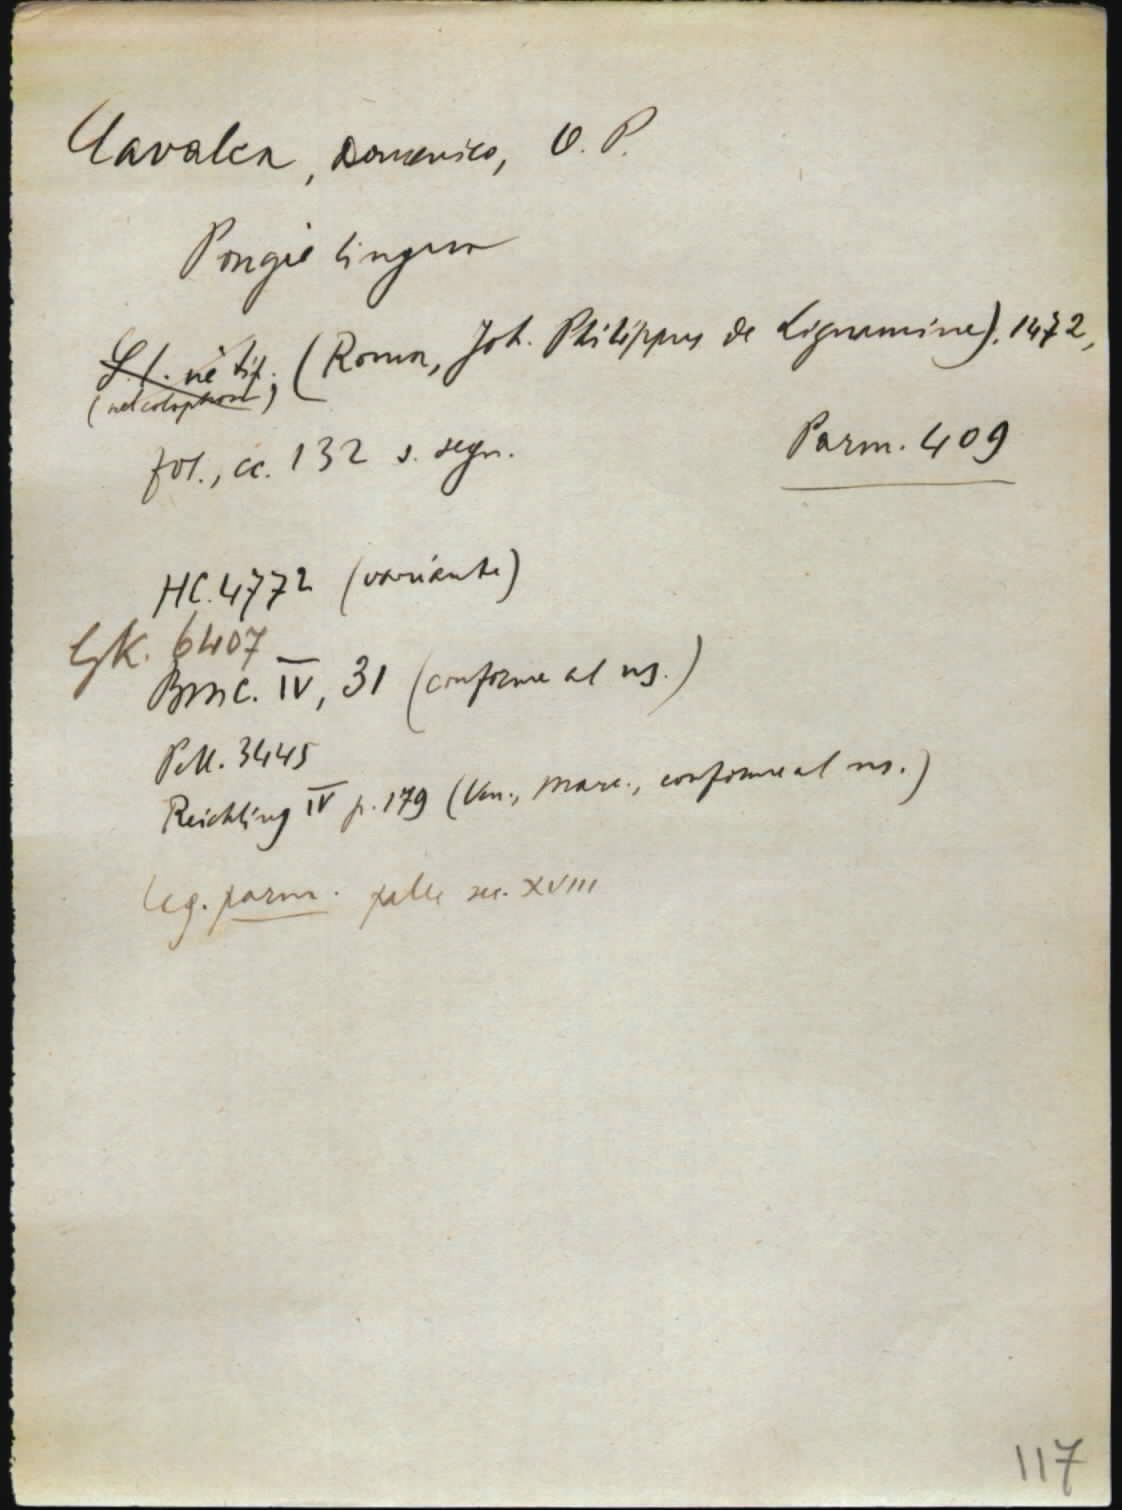 Cavalca, Domenico, O. P.
Pongie lingua
S. l. nè tip. (Roma, Joh. Philippus de Lignamine). 1472,
(nel colophon)
fol., cc. 132 s. segn.
Parm. 409
HC. 4772 (variante)
GK. 6407
BMC. IV, 31 (conforme al ns.)
Pell. 3445
Reichling IV p. 179 (Ven., Marc., conforme al ns.)
Leg. parm. pelle sec. XVIII
117